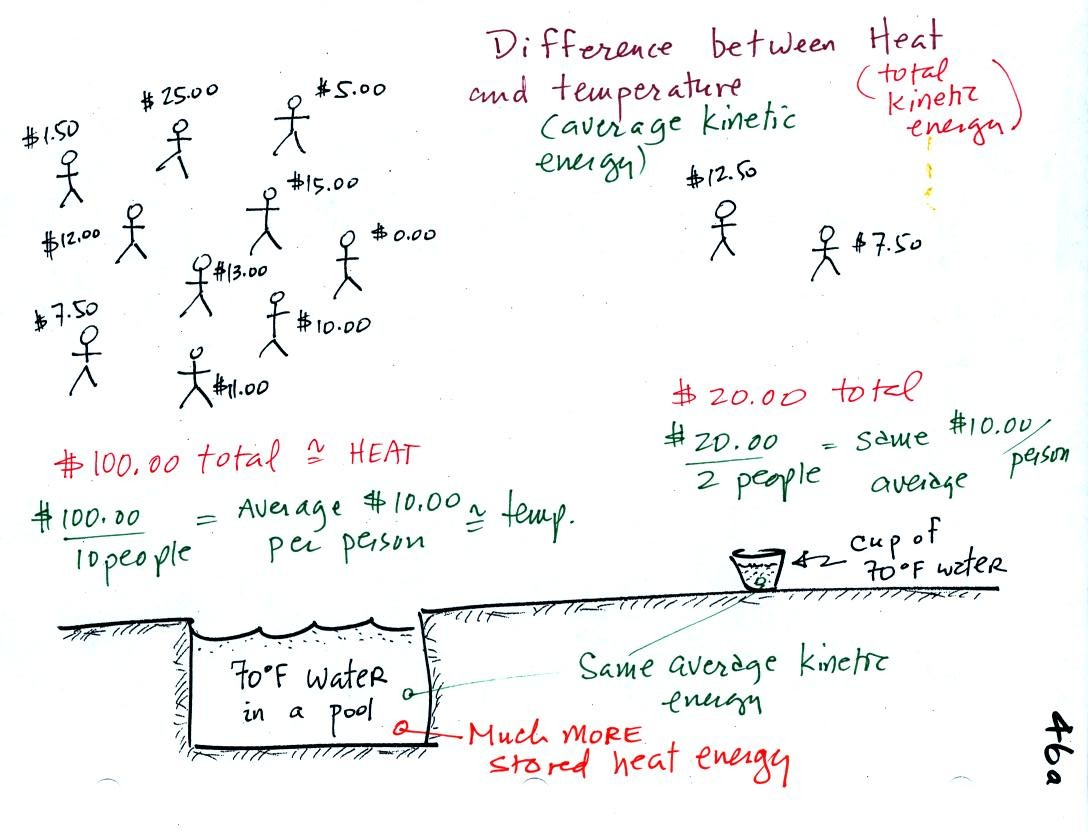 Difference between Heat
and temperature
(total
kinetic
energy)
(average kinetic
energy)
$1.50
$25.00
$5.00
$12.00
$15.00
$13.00
$0.00
$7.50
$10.00
$11.00
$12.50
$7.50
$100.00 total ≅ HEAT
$100.00 / 10 people = Average $10.00 per person ≅ temp.
$20.00 total
$20.00 / 2 people = same $10.00/person average
cup of
70°F water
70°F water
in a pool
Same average kinetic
energy
Much MORE
stored heat energy
46a